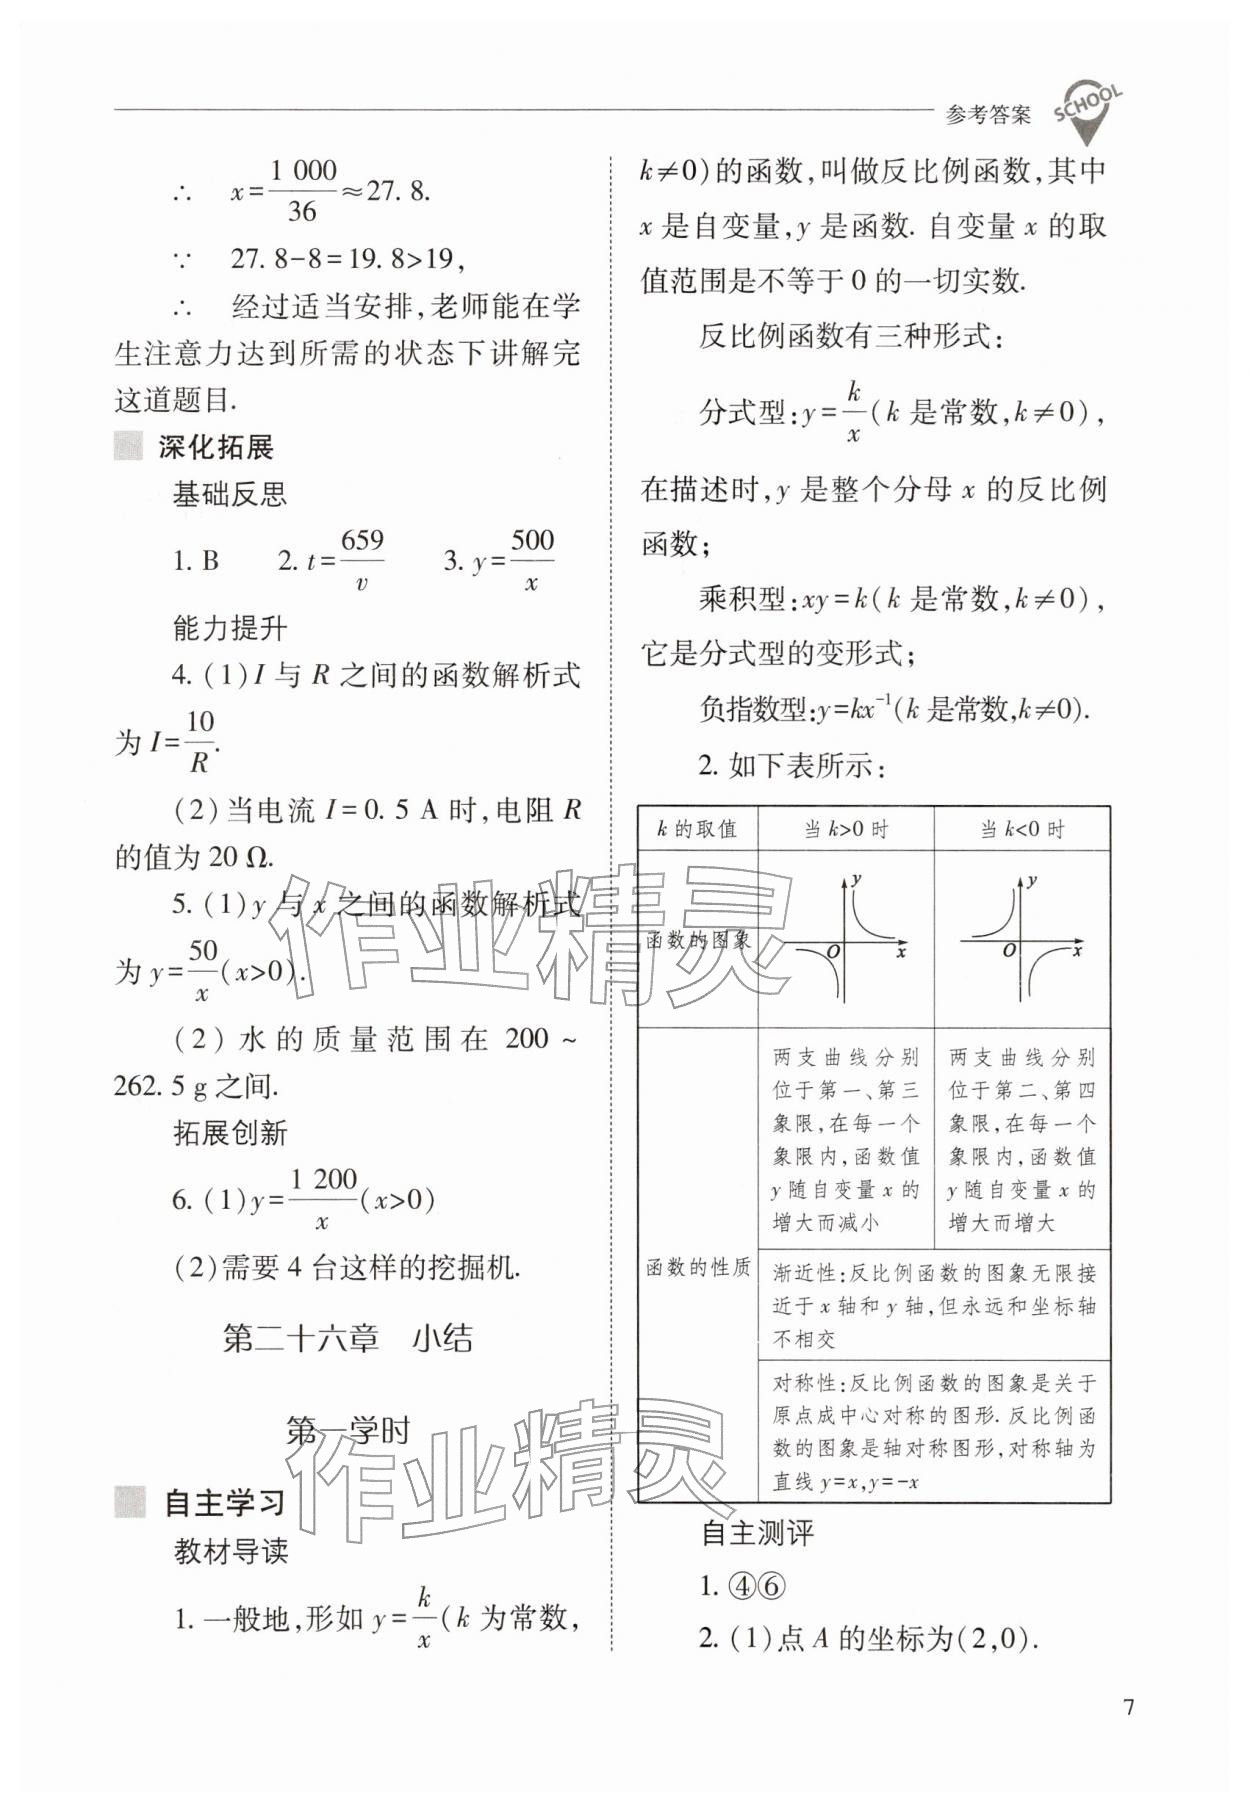 参考答案
SCHOOL
∴ x=1 000/36≈27.8.
∵ 27.8-8=19.8>19,
∴ 经过适当安排,老师能在学
生注意力达到所需的状态下讲解完
这道题目.
深化拓展
基础反思
1. B 2. t=659/v 3. y=500/x
能力提升
4. (1)I 与 R 之间的函数解析式
为 I=10/R.
(2)当电流 I=0.5 A 时,电阻 R
的值为 20 Ω.
5. (1)y 与 x 之间的函数解析式
为 y=50/x(x>0).
(2)水的质量范围在 200 ~
262.5 g 之间.
拓展创新
6. (1)y=1 200/x(x>0)
(2)需要 4 台这样的挖掘机.
第二十六章 小结
第一学时
自主学习
教材导读
1. 一般地,形如 y=k/x(k 为常数,
k≠0)的函数,叫做反比例函数,其中
x 是自变量,y 是函数. 自变量 x 的取
值范围是不等于 0 的一切实数.
反比例函数有三种形式:
分式型:y=k/x(k 是常数,k≠0),
在描述时,y 是整个分母 x 的反比例
函数;
乘积型:xy=k(k 是常数,k≠0),
它是分式型的变形式;
负指数型:y=kx⁻¹(k 是常数,k≠0).
2. 如下表所示:
k 的取值 当 k>0 时 当 k<0 时
函数的图象
y
O x
y
O x
函数的性质
两支曲线分别
位于第一、第三
象限,在每一个
象限内,函数值
y 随自变量 x 的
增大而减小
两支曲线分别
位于第二、第四
象限,在每一个
象限内,函数值
y 随自变量 x 的
增大而增大
渐近性:反比例函数的图象无限接
近于 x 轴和 y 轴,但永远和坐标轴
不相交
对称性:反比例函数的图象是关于
原点成中心对称的图形. 反比例函
数的图象是轴对称图形,对称轴为
直线 y=x,y=-x
自主测评
1. ④⑥
2. (1)点 A 的坐标为(2,0).
7
作业精灵
作业精灵